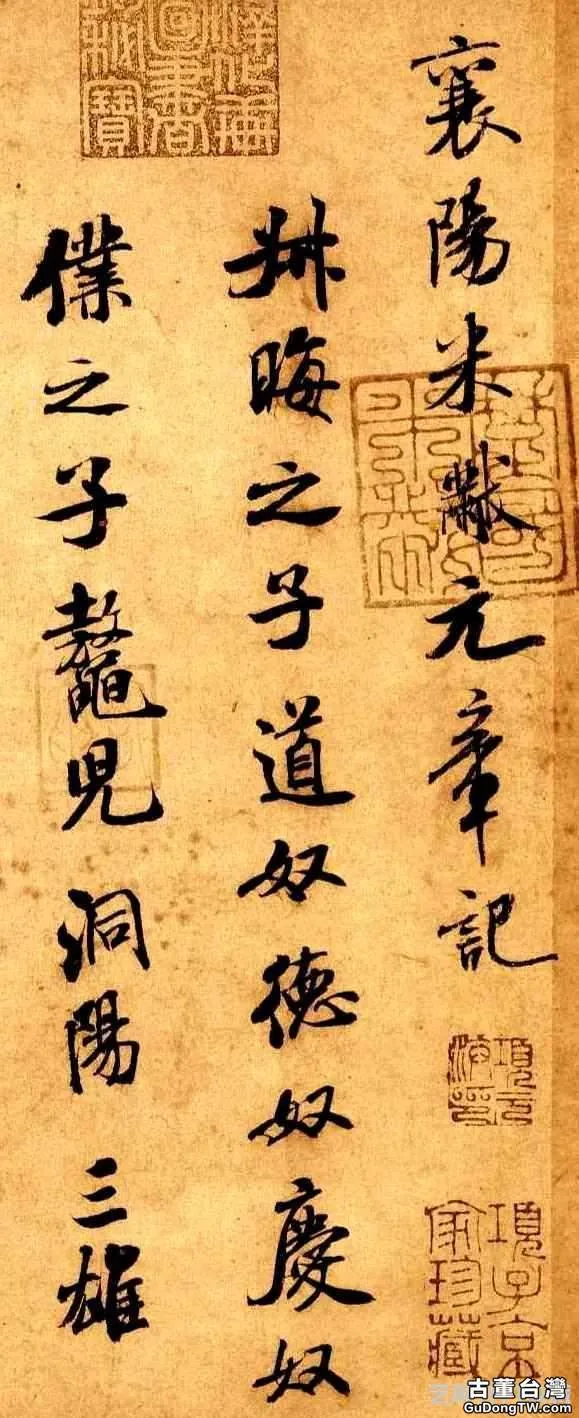 襄陽米黻元章記
叔晦之子道奴德奴慶奴
僕之子鼇兒洞陽三雄
項子京家珍藏
古董台灣
GuDongTW.com